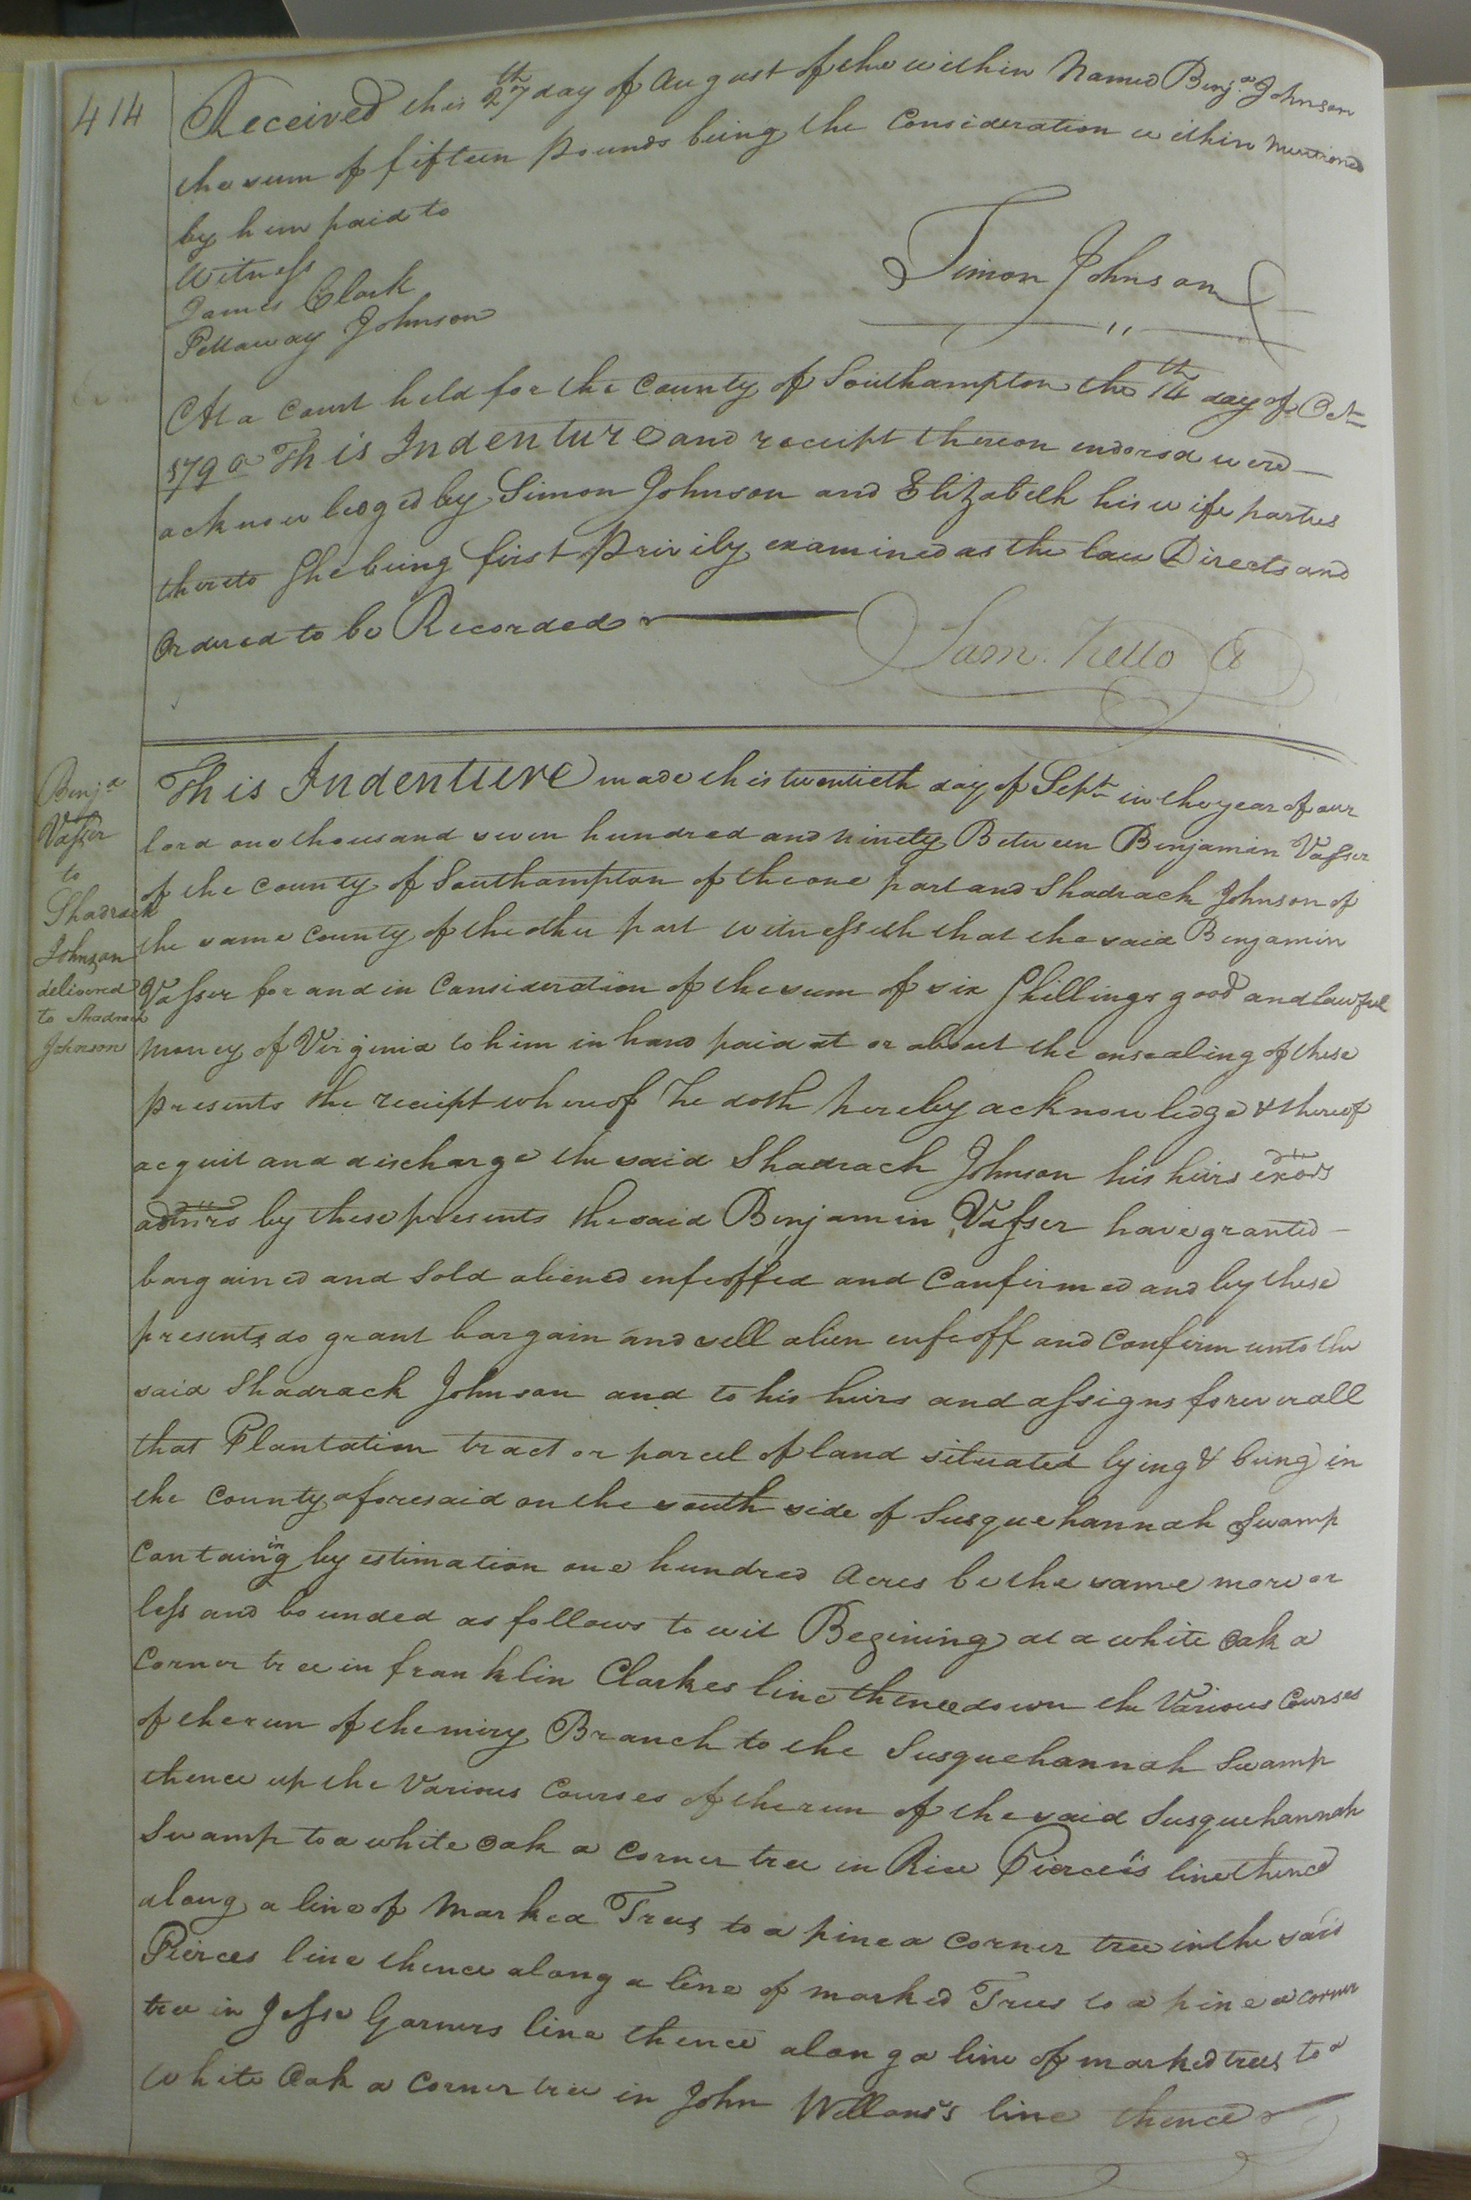 414
Received this 27th day of August of the within Named Benja Johnson
the sum of fifteen Pounds being the Consideration within Mentioned
by him paid to
Witness
James Clark
Pettaway Johnson
Simon Johnson
At a Court held for the County of Southampton the 14th day of Octr
1790 This Indenture and receipt thereon endorsd were
acknowledged by Simon Johnson and Elizabeth his wife parties
thereto She being first Privily examined as the law Directs and
Ordered to be Recorded
Sam. Kello Cl
Benja
Vasser
to
Shadrack
Johnson
delivered
to Shadrack
Johnson
This Indenture made this twentieth day of Septr in the year of our
lord one thousand seven hundred and ninety Between Benjamin Vasser
of the County of Southampton of the one part and Shadrack Johnson of
the same County of the other part witnesseth that the said Benjamin
Vasser for and in Consideration of the sum of six Shillings good and lawful
money of Virginia to him in hand paid at or about the ensealing of these
presents the receipt whereof he doth hereby acknowledge & thereof
acquit and discharge the said Shadrack Johnson his heirs exors
admrs by these presents the said Benjamin Vasser have granted
bargained and Sold aliened enfeoffed and Confirmed and by these
presents do grant bargain and sell alien enfeoff and Confirm unto the
said Shadrack Johnson and to his heirs and assigns forever all
that Plantation tract or parcel of land situated lying & being in
the County aforesaid on the south side of Susquehannah Swamp
Containing by estimation one hundred Acres be the same more or
less and bounded as follows to wit Begining at a white oak a
Corner tree in franklin Clarkes line thence down the Various Courses
of the run of the miry Branch to the Susquehannah Swamp
thence up the Various Courses of the run of the said Susquehannah
Swamp to a white oak a Corner tree in Rice Pierce's line thence
along a line of Marked Trees to a pine a Corner tree in the said
Pierces line thence along a line of marked Trees to a pine a corner
tree in Jesse Garners line thence along a line of marked trees to a
White Oak a Corner tree in John Wellons's line thence